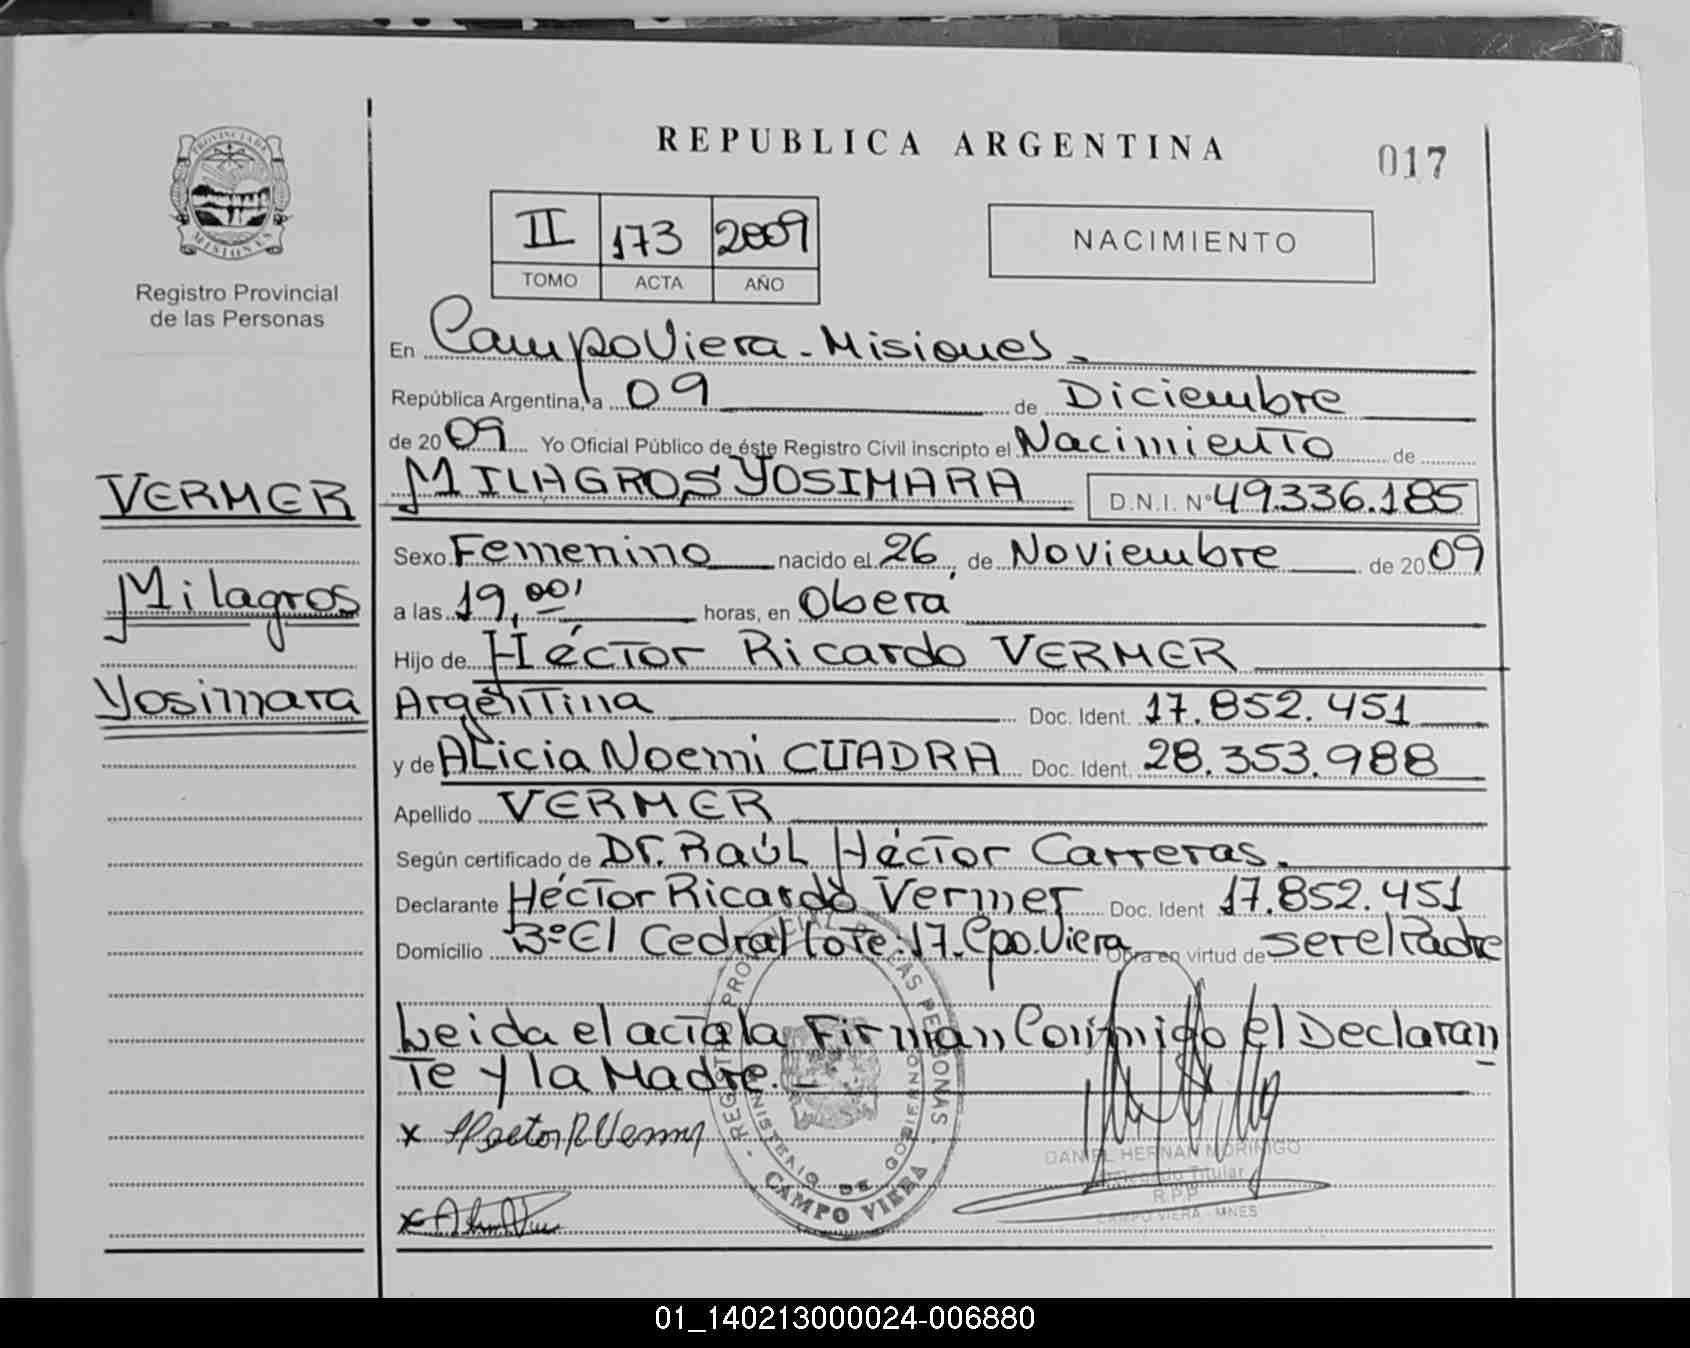 REPUBLICA ARGENTINA
017
PROVINCIA DE
MISIONES
Registro Provincial
de las Personas
II 173 2009
TOMO ACTA AÑO
NACIMIENTO
En Campo Viera - Misiones.
República Argentina, a 09 de Diciembre
de 2009 Yo Oficial Público de éste Registro Civil inscripto el Nacimiento de
MILAGROS YOSIMARA D.N.I. Nº 49.336.185
VERMER
Milagros
Yosimara
Sexo Femenino nacido el 26, de Noviembre de 2009
a las 19,00' horas, en Oberá
Hijo de Héctor Ricardo VERMER
Argentina Doc. Ident. 17.852.451
y de Alicia Noemi CUADRA Doc. Ident. 28.353.988
Apellido VERMER
Según certificado de Dr. Raúl Héctor Carreras.
Declarante Héctor Ricardo Vermer Doc. Ident 17.852.451
Domicilio Bº El Cedral lote:17. Cpo. Viera Obra en virtud de ser el Padre
Leida el acta la Firman Conmigo el Declaran
te y la Madre.
x Hector R Vermer
x
REGISTRO PROVINCIAL DE LAS PERSONAS
MINISTERIO DE GOBIERNO
CAMPO VIERA
DANIEL HERNAN MORINIGO
Delegado Titular
R.P.P.
CAMPO VIERA - MNES
01_140213000024-006880